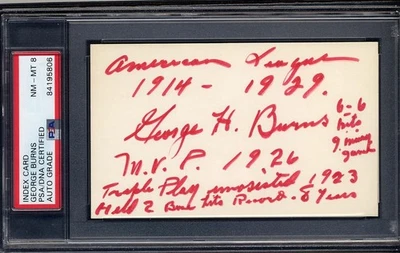 INDEX CARD
GEORGE BURNS
PSA/DNA CERTIFIED
AUTO GRADE
NM - MT 8
PSA
84195806
American League
1914 - 1929.
George H. Burns
6-6
hits
9 inning
game
M.V.P. 1926
Triple Play unassisted 1923
Held 2 Base hits Record - 8 Years